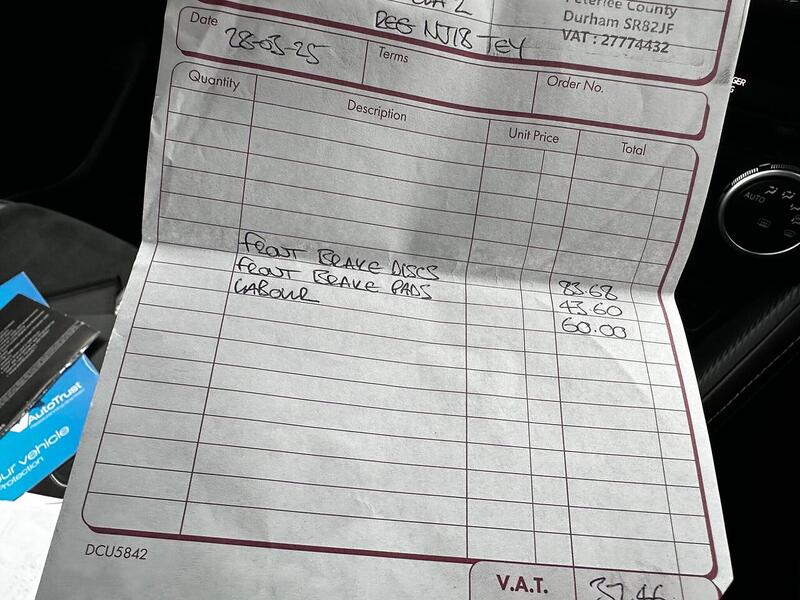 Peterlee County
Durham SR82JF
VAT : 27774432
REG NJ18 TEY
Date
28-03-25
Terms
Order No.
Quantity
Description
Unit Price
Total
FRONT BRAKE DISCS 83.68
FRONT BRAKE PADS 43.60
LABOUR 60.00
DCU5842
V.A.T. 37.46
AutoTrust
ur vehicle
rotection
AUTO